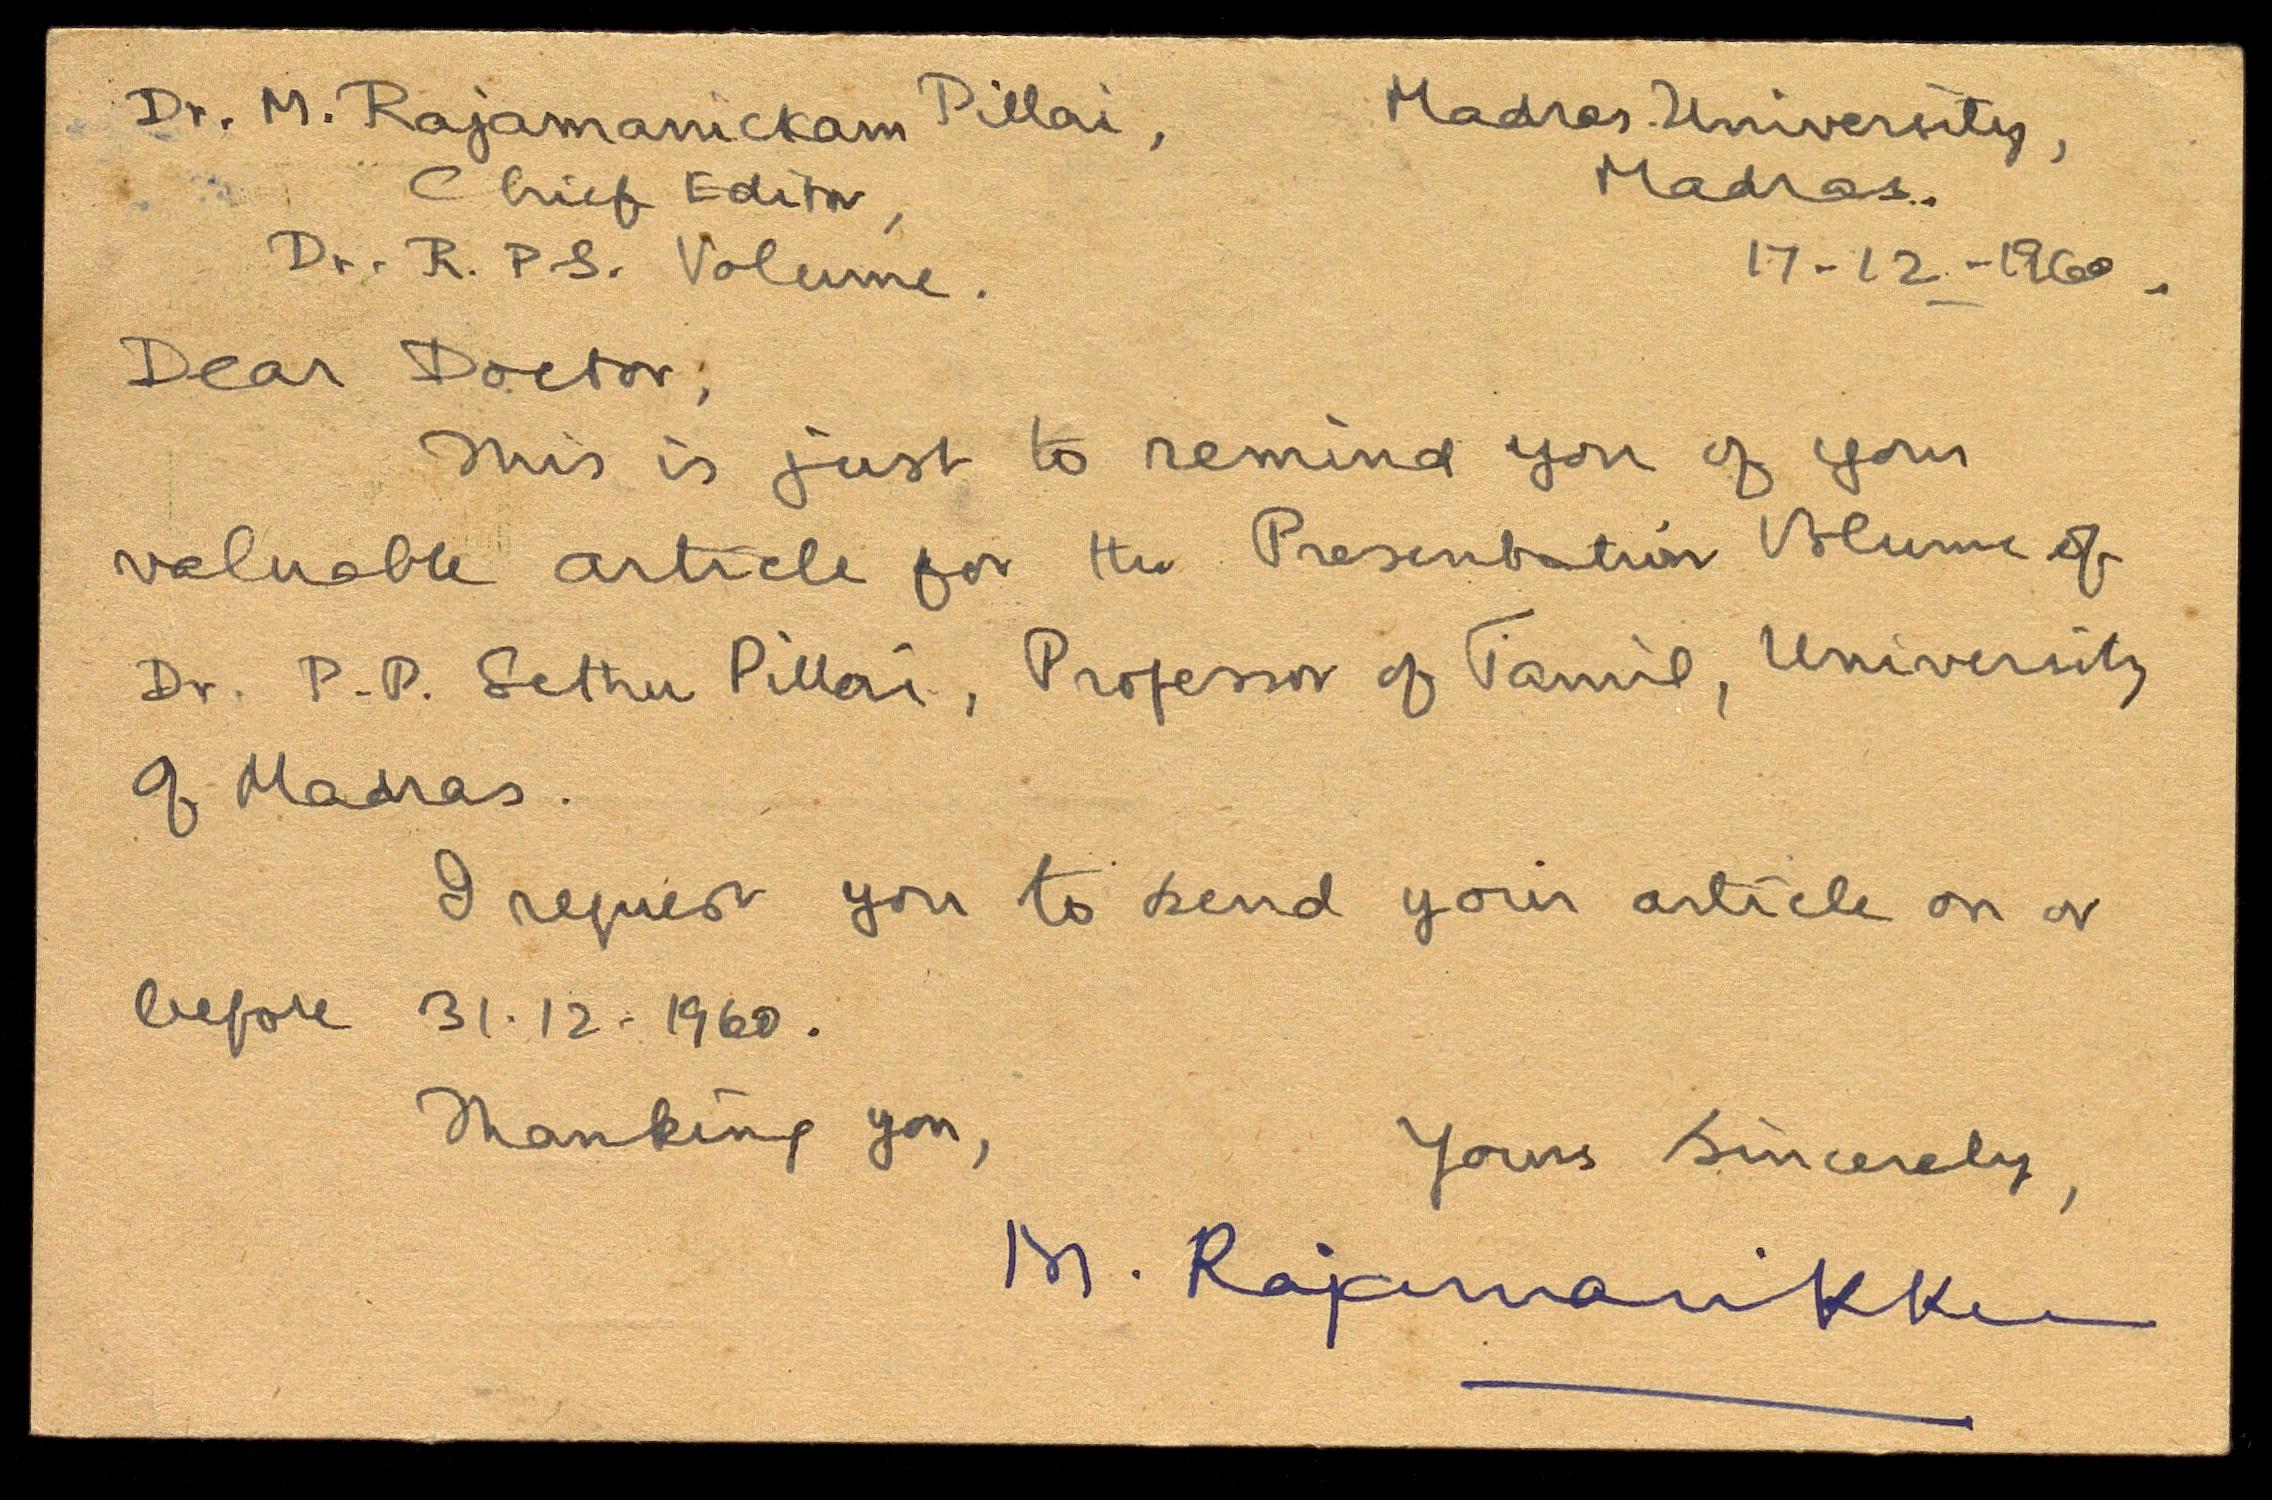 Dr. M. Rajamanickam Pillai,
Chief Editor,
Dr. R. P. S. Volume.
Madras University,
Madras.
17-12-1960.
Dear Doctor,
This is just to remind you of your
valuable article for the Presentation Volume of
Dr. P. P. Sethu Pillai, Professor of Tamil, University
of Madras.
I request you to send your article on or
before 31-12-1960.
Thanking you,
Yours Sincerely,
M. Rajamanikkam